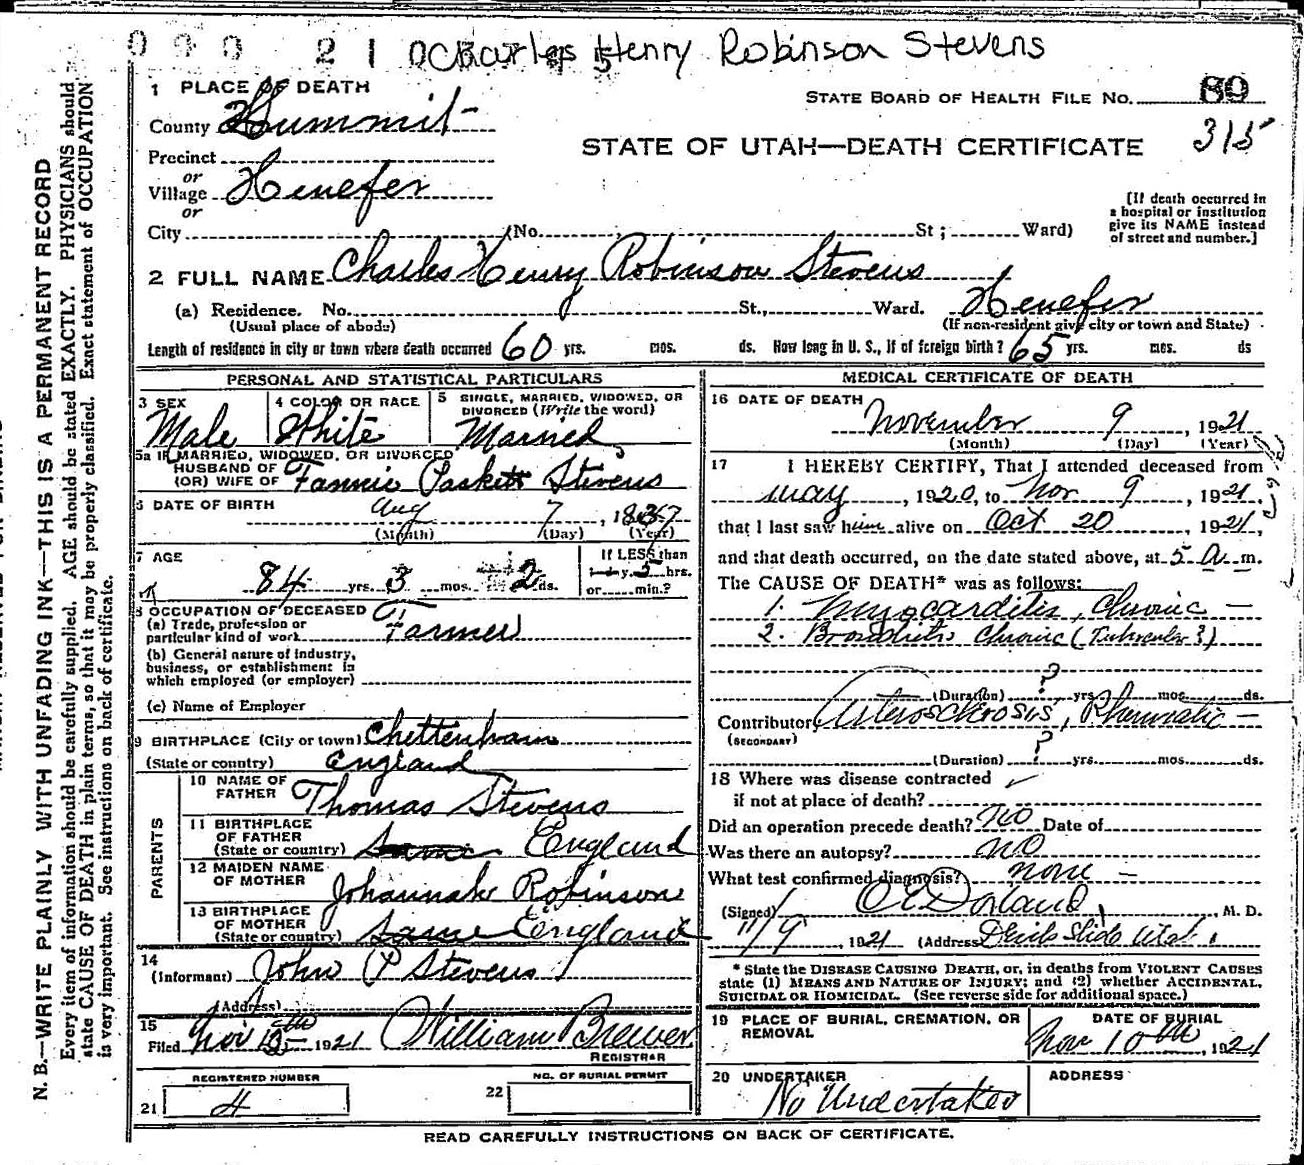 Charles Henry Robinson Stevens
1 PLACE OF DEATH
STATE BOARD OF HEALTH FILE No. 89
County Summit
315
STATE OF UTAH—DEATH CERTIFICATE
Precinct
or
Village Henefer
or
[If death occurred in
a hospital or institution
give its NAME instead
of street and number.]
City (No. St; Ward)
2 FULL NAME Charles Henry Robinson Stevens
(a) Residence. No. St., Ward. Henefer
(Usual place of abode) (If non-resident give city or town and State)
Length of residence in city or town where death occurred 60 yrs. mos. ds. How long in U. S., if of foreign birth? 65 yrs. mos. ds
PERSONAL AND STATISTICAL PARTICULARS
3 SEX Male
4 COLOR OR RACE White
5 SINGLE, MARRIED, WIDOWED, OR
DIVORCED (Write the word)
Married
5a IF MARRIED, WIDOWED, OR DIVORCED
HUSBAND OF
(OR) WIFE OF Fannie Paskett Stevens
6 DATE OF BIRTH Aug 7, 1837
(Month) (Day) (Year)
7 AGE
84 yrs. 3 mos. 2 ds.
If LESS than
1 day, 5 hrs.
or min.?
8 OCCUPATION OF DECEASED
(a) Trade, profession or
particular kind of work Farmer
(b) General nature of industry,
business, or establishment in
which employed (or employer)
(c) Name of Employer
9 BIRTHPLACE (City or town) Chettenham
(State or country) England
PARENTS
10 NAME OF
FATHER Thomas Stevens
11 BIRTHPLACE
OF FATHER
(State or country) Same England
12 MAIDEN NAME
OF MOTHER Johannah Robinson
13 BIRTHPLACE
OF MOTHER
(State or country) Same England
14
(Informant) John P Stevens
(Address)
15
Filed Nov 15th 1921 William Brewer
REGISTRAR
REGISTERED NUMBER
21 4
NO. OF BURIAL PERMIT
22
MEDICAL CERTIFICATE OF DEATH
16 DATE OF DEATH
November 9, 1921
(Month) (Day) (Year)
17 I HEREBY CERTIFY, That I attended deceased from
May, 1920, to Nov 9, 1921
that I last saw him alive on Oct 20, 1921,
and that death occurred, on the date stated above, at 5 a m.
The CAUSE OF DEATH* was as follows:
1. Myocarditis, Chronic —
2. Bronchitis Chronic (Tubercular?)
(Duration) ? yrs. mos. ds.
Contributory Arterosclrosis, Rheumatic —
(SECONDARY)
(Duration) ? yrs. mos. ds.
18 Where was disease contracted
if not at place of death?
Did an operation precede death? No Date of
Was there an autopsy? no
What test confirmed diagnosis? none —
(Signed) Dorland, M. D.
11/9, 1921 (Address) Devils Slide Utah.
* State the DISEASE CAUSING DEATH, or, in deaths from VIOLENT CAUSES
state (1) MEANS AND NATURE OF INJURY; and (2) whether ACCIDENTAL,
SUICIDAL OR HOMICIDAL. (See reverse side for additional space.)
19 PLACE OF BURIAL, CREMATION, OR
REMOVAL
DATE OF BURIAL
Nov 10th, 1921
20 UNDERTAKER
No Undertaker
ADDRESS
READ CAREFULLY INSTRUCTIONS ON BACK OF CERTIFICATE.
N. B.—WRITE PLAINLY WITH UNFADING INK—THIS IS A PERMANENT RECORD
Every item of information should be carefully supplied. AGE should be stated EXACTLY. PHYSICIANS should
state CAUSE OF DEATH in plain terms, so that it may be properly classified. Exact statement of OCCUPATION
is very important. See instructions on back of certificate.